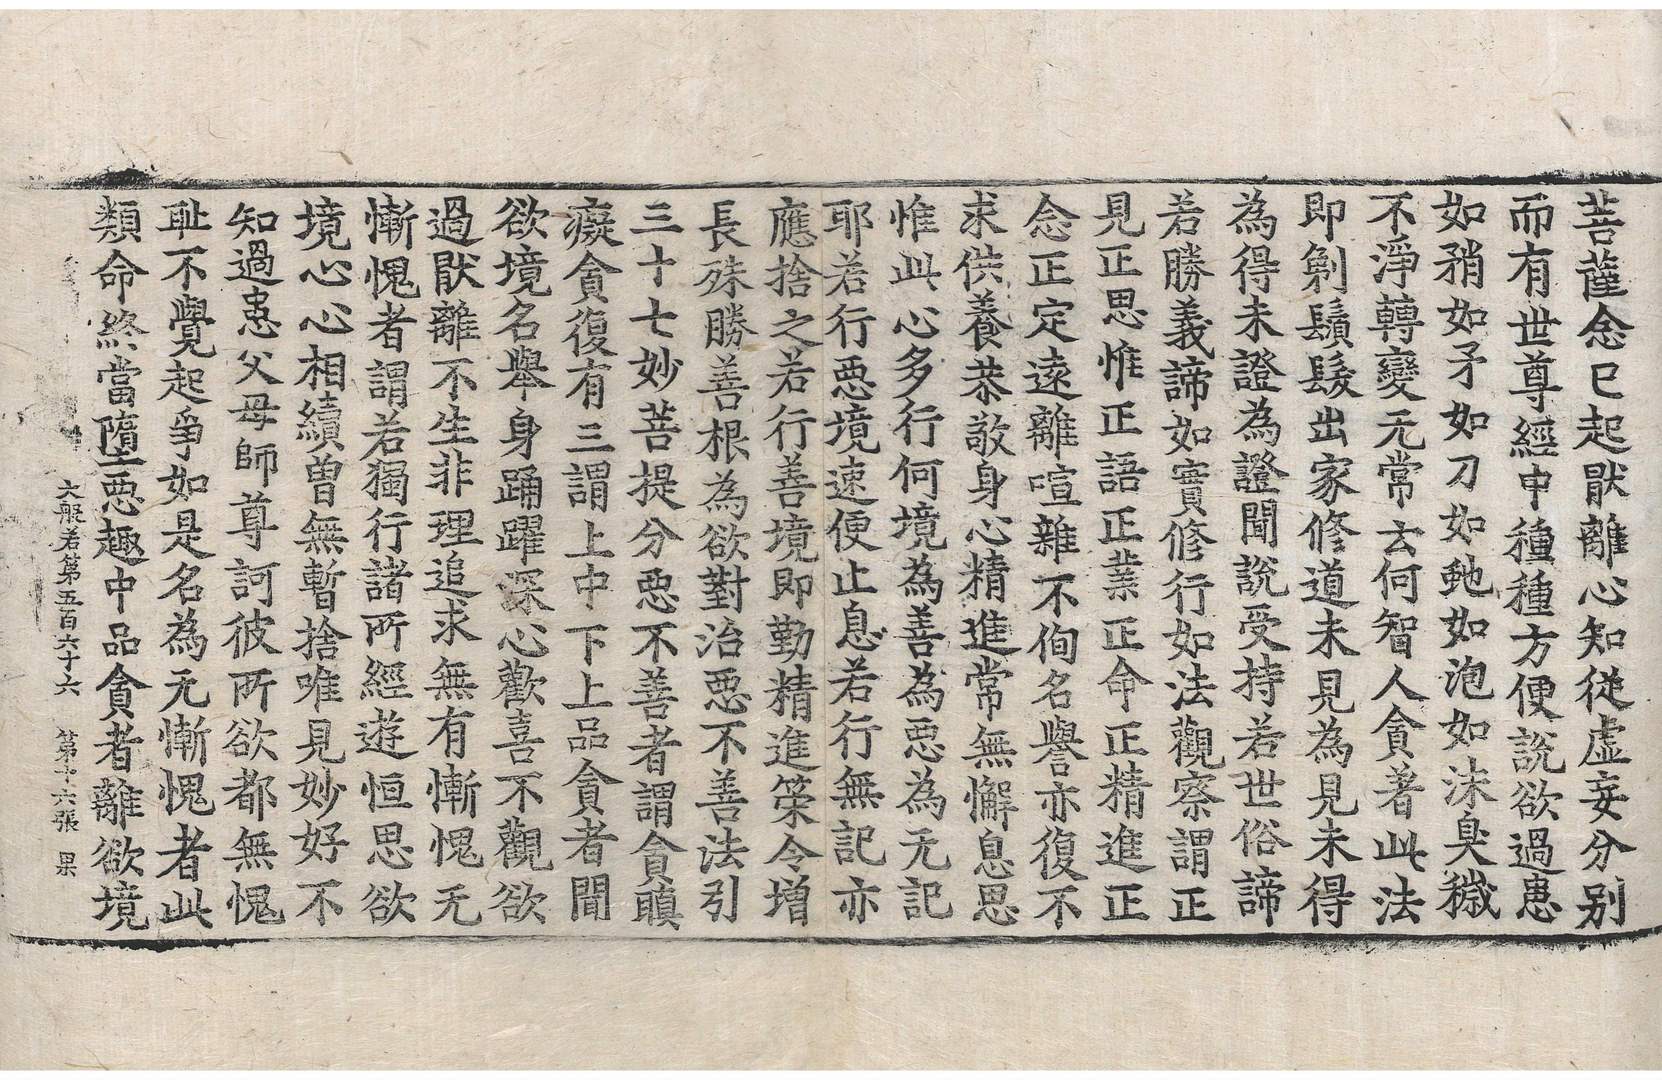 菩薩念已起猒離心知從虛妄分別
而有世尊經中種種方便說欲過患
如矟如矛如刀如虵如泡如沫臭穢
不淨轉變无常云何智人貪著此法
即剃鬚髮出家修道未見為見未得
為得未證為證聞說受持若世俗諦
若勝義諦如實修行如法觀察謂正
見正思惟正語正業正命正精進正
念正定遠離喧雜不侚名譽亦復不
求供養恭敬身心精進常無懈息思
惟此心多行何境為善為惡為无記
耶若行惡境速便止息若行無記亦
應捨之若行善境即勤精進筞令增
長殊勝善根為欲對治惡不善法引
三十七妙菩提分惡不善者謂貪瞋
癡貪復有三謂上中下上品貪者聞
欲境名舉身踊躍深心歡喜不觀欲
過猒離不生非理追求無有慚愧无
慚愧者謂若獨行諸所經遊恒思欲
境心心相續曾無暫捨唯見妙好不
知過患父母師尊訶彼所欲都無愧
耻不覺起爭如是名為无慚愧者此
類命終當墮惡趣中品貪者離欲境
大般若第五百六十六 第十六張 果